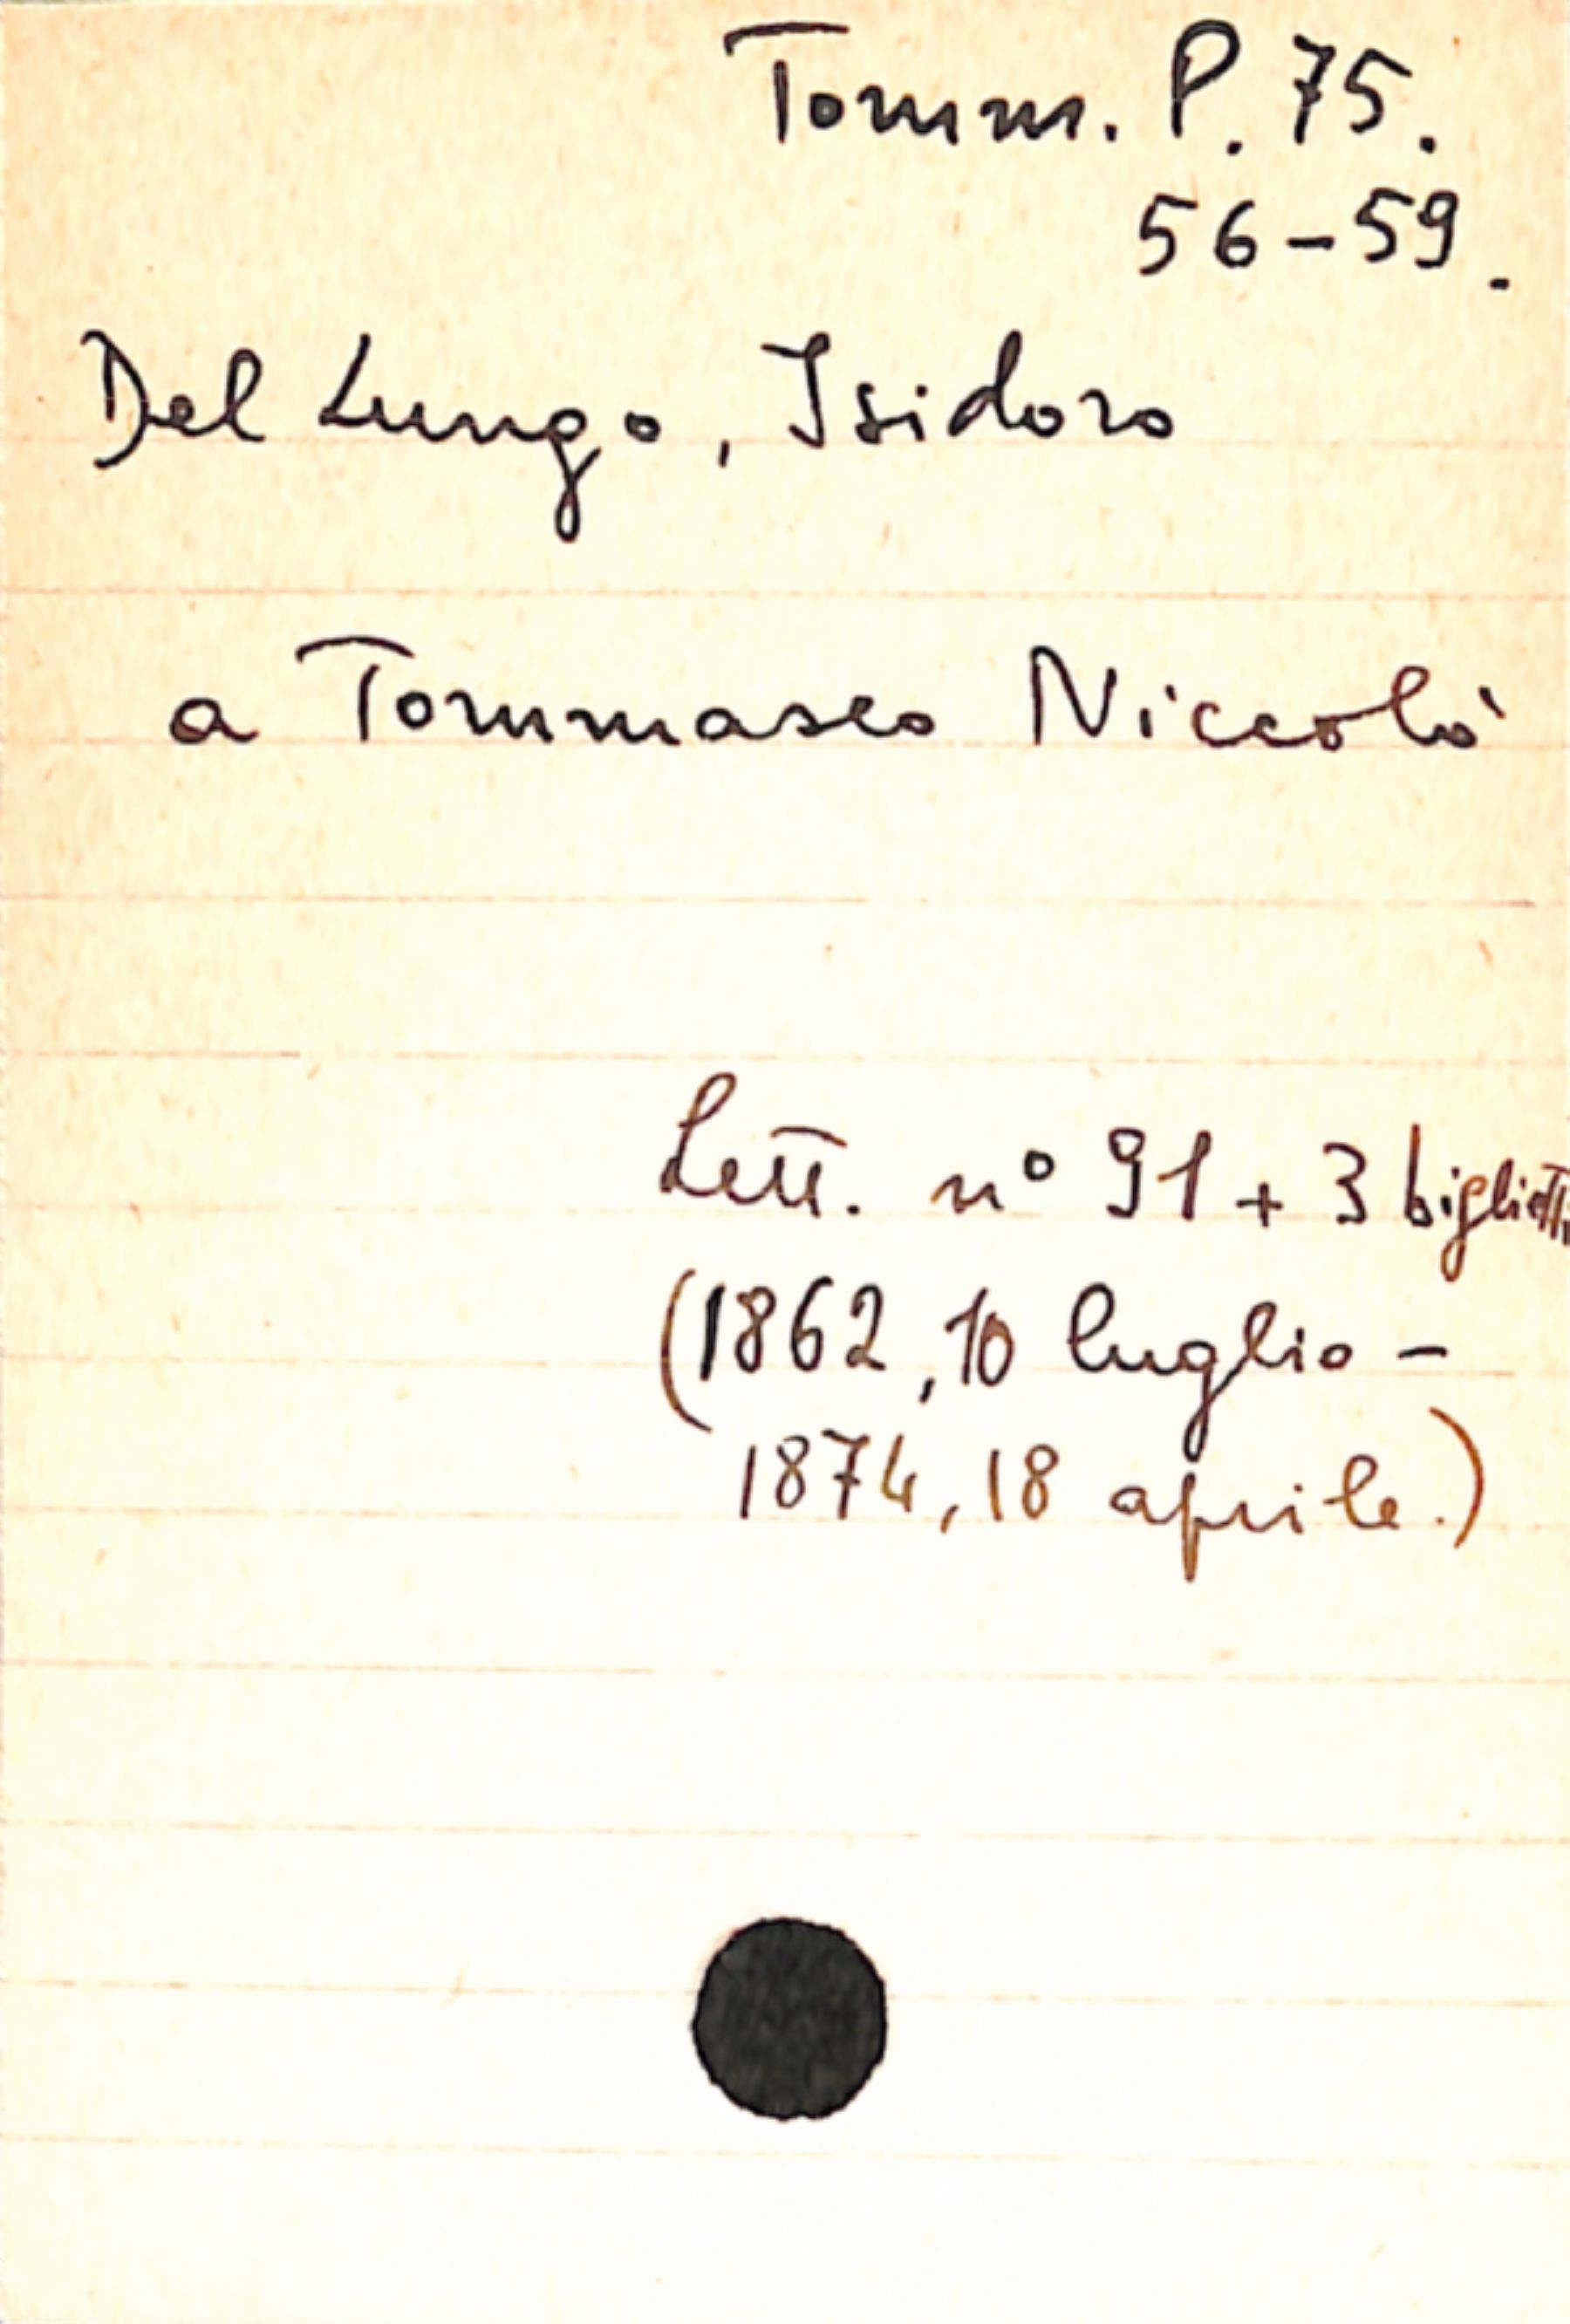 Tomm. P. 75.
56-59.
Del Lungo, Isidoro
a Tommaseo Niccolò
Lett. n° 91 + 3 biglietti
(1862, 10 luglio -
1874, 18 aprile.)